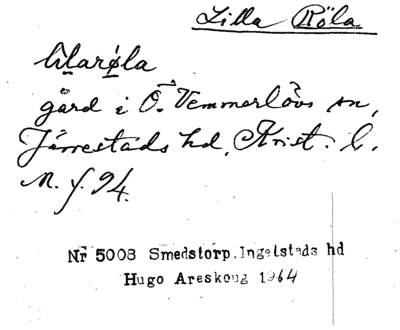 Lilla Röla
gård i Ö. Vemmerlövs sn,
Järrestads hd, Krist. l.
M. f. 94.
Nr 5008 Smedstorp. Ingelstads hd
Hugo Areskoug 1964